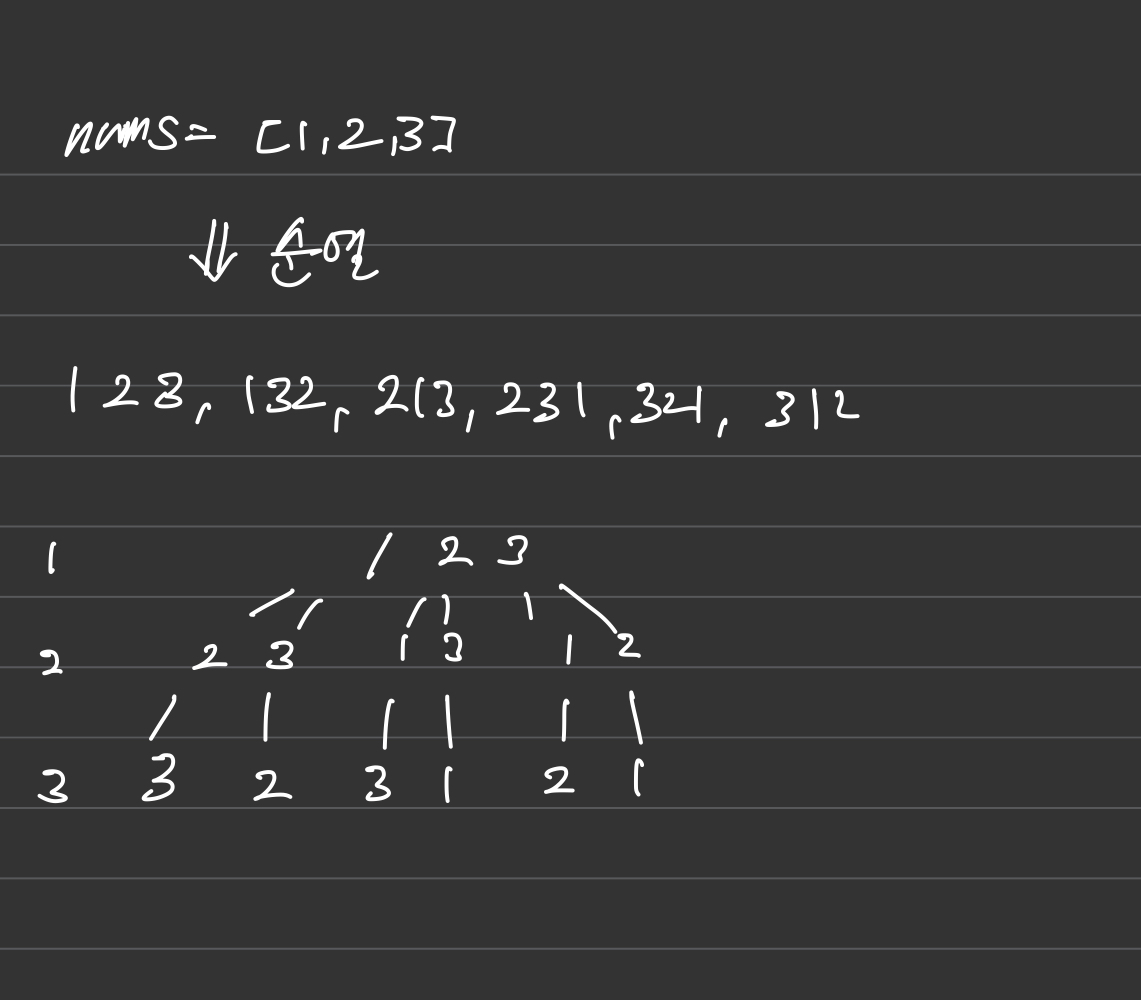 nums= [1,2,3]
⇓ 순열
123, 132, 213, 231, 321, 312
1 1 2 3
2 2 3 1 3 1 2
3 3 2 3 1 2 1